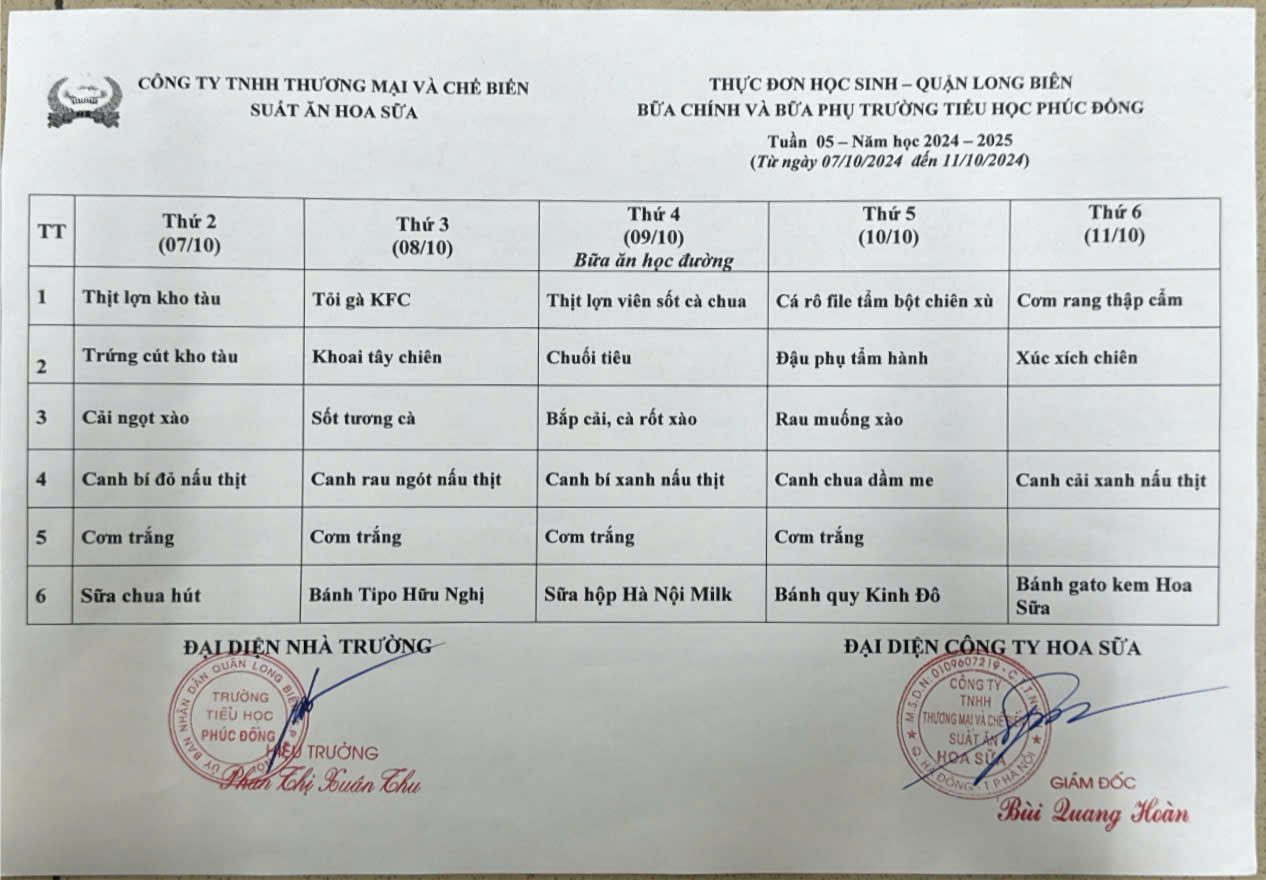 CÔNG TY TNHH THƯƠNG MẠI VÀ CHẾ BIẾN
SUẤT ĂN HOA SỮA
THỰC ĐƠN HỌC SINH – QUẬN LONG BIÊN
BỮA CHÍNH VÀ BỮA PHỤ TRƯỜNG TIỂU HỌC PHÚC ĐỒNG
Tuần 05 – Năm học 2024 – 2025
(Từ ngày 07/10/2024 đến 11/10/2024)
TT | Thứ 2 (07/10) | Thứ 3 (08/10) | Thứ 4 (09/10) Bữa ăn học đường | Thứ 5 (10/10) | Thứ 6 (11/10)
1 | Thịt lợn kho tàu | Tỏi gà KFC | Thịt lợn viên sốt cà chua | Cá rô file tẩm bột chiên xù | Cơm rang thập cẩm
2 | Trứng cút kho tàu | Khoai tây chiên | Chuối tiêu | Đậu phụ tẩm hành | Xúc xích chiên
3 | Cải ngọt xào | Sốt tương cà | Bắp cải, cà rốt xào | Rau muống xào |
4 | Canh bí đỏ nấu thịt | Canh rau ngót nấu thịt | Canh bí xanh nấu thịt | Canh chua dầm me | Canh cải xanh nấu thịt
5 | Cơm trắng | Cơm trắng | Cơm trắng | Cơm trắng |
6 | Sữa chua hút | Bánh Tipo Hữu Nghị | Sữa hộp Hà Nội Milk | Bánh quy Kinh Đô | Bánh gato kem Hoa Sữa
ĐẠI DIỆN NHÀ TRƯỜNG
ĐẠI DIỆN CÔNG TY HOA SỮA
ỦY BAN NHÂN DÂN QUẬN LONG BIÊN
TRƯỜNG
TIỂU HỌC
PHÚC ĐỒNG
HIỆU TRƯỞNG
Phan Thị Xuân Thu
M.S.D.N: 0109607219
CÔNG TY
TNHH
THƯƠNG MẠI VÀ CHẾ BIẾN
SUẤT ĂN
HOA SỮA
Q. HÀ ĐÔNG - T.P HÀ NỘI
GIÁM ĐỐC
Bùi Quang Hoàn